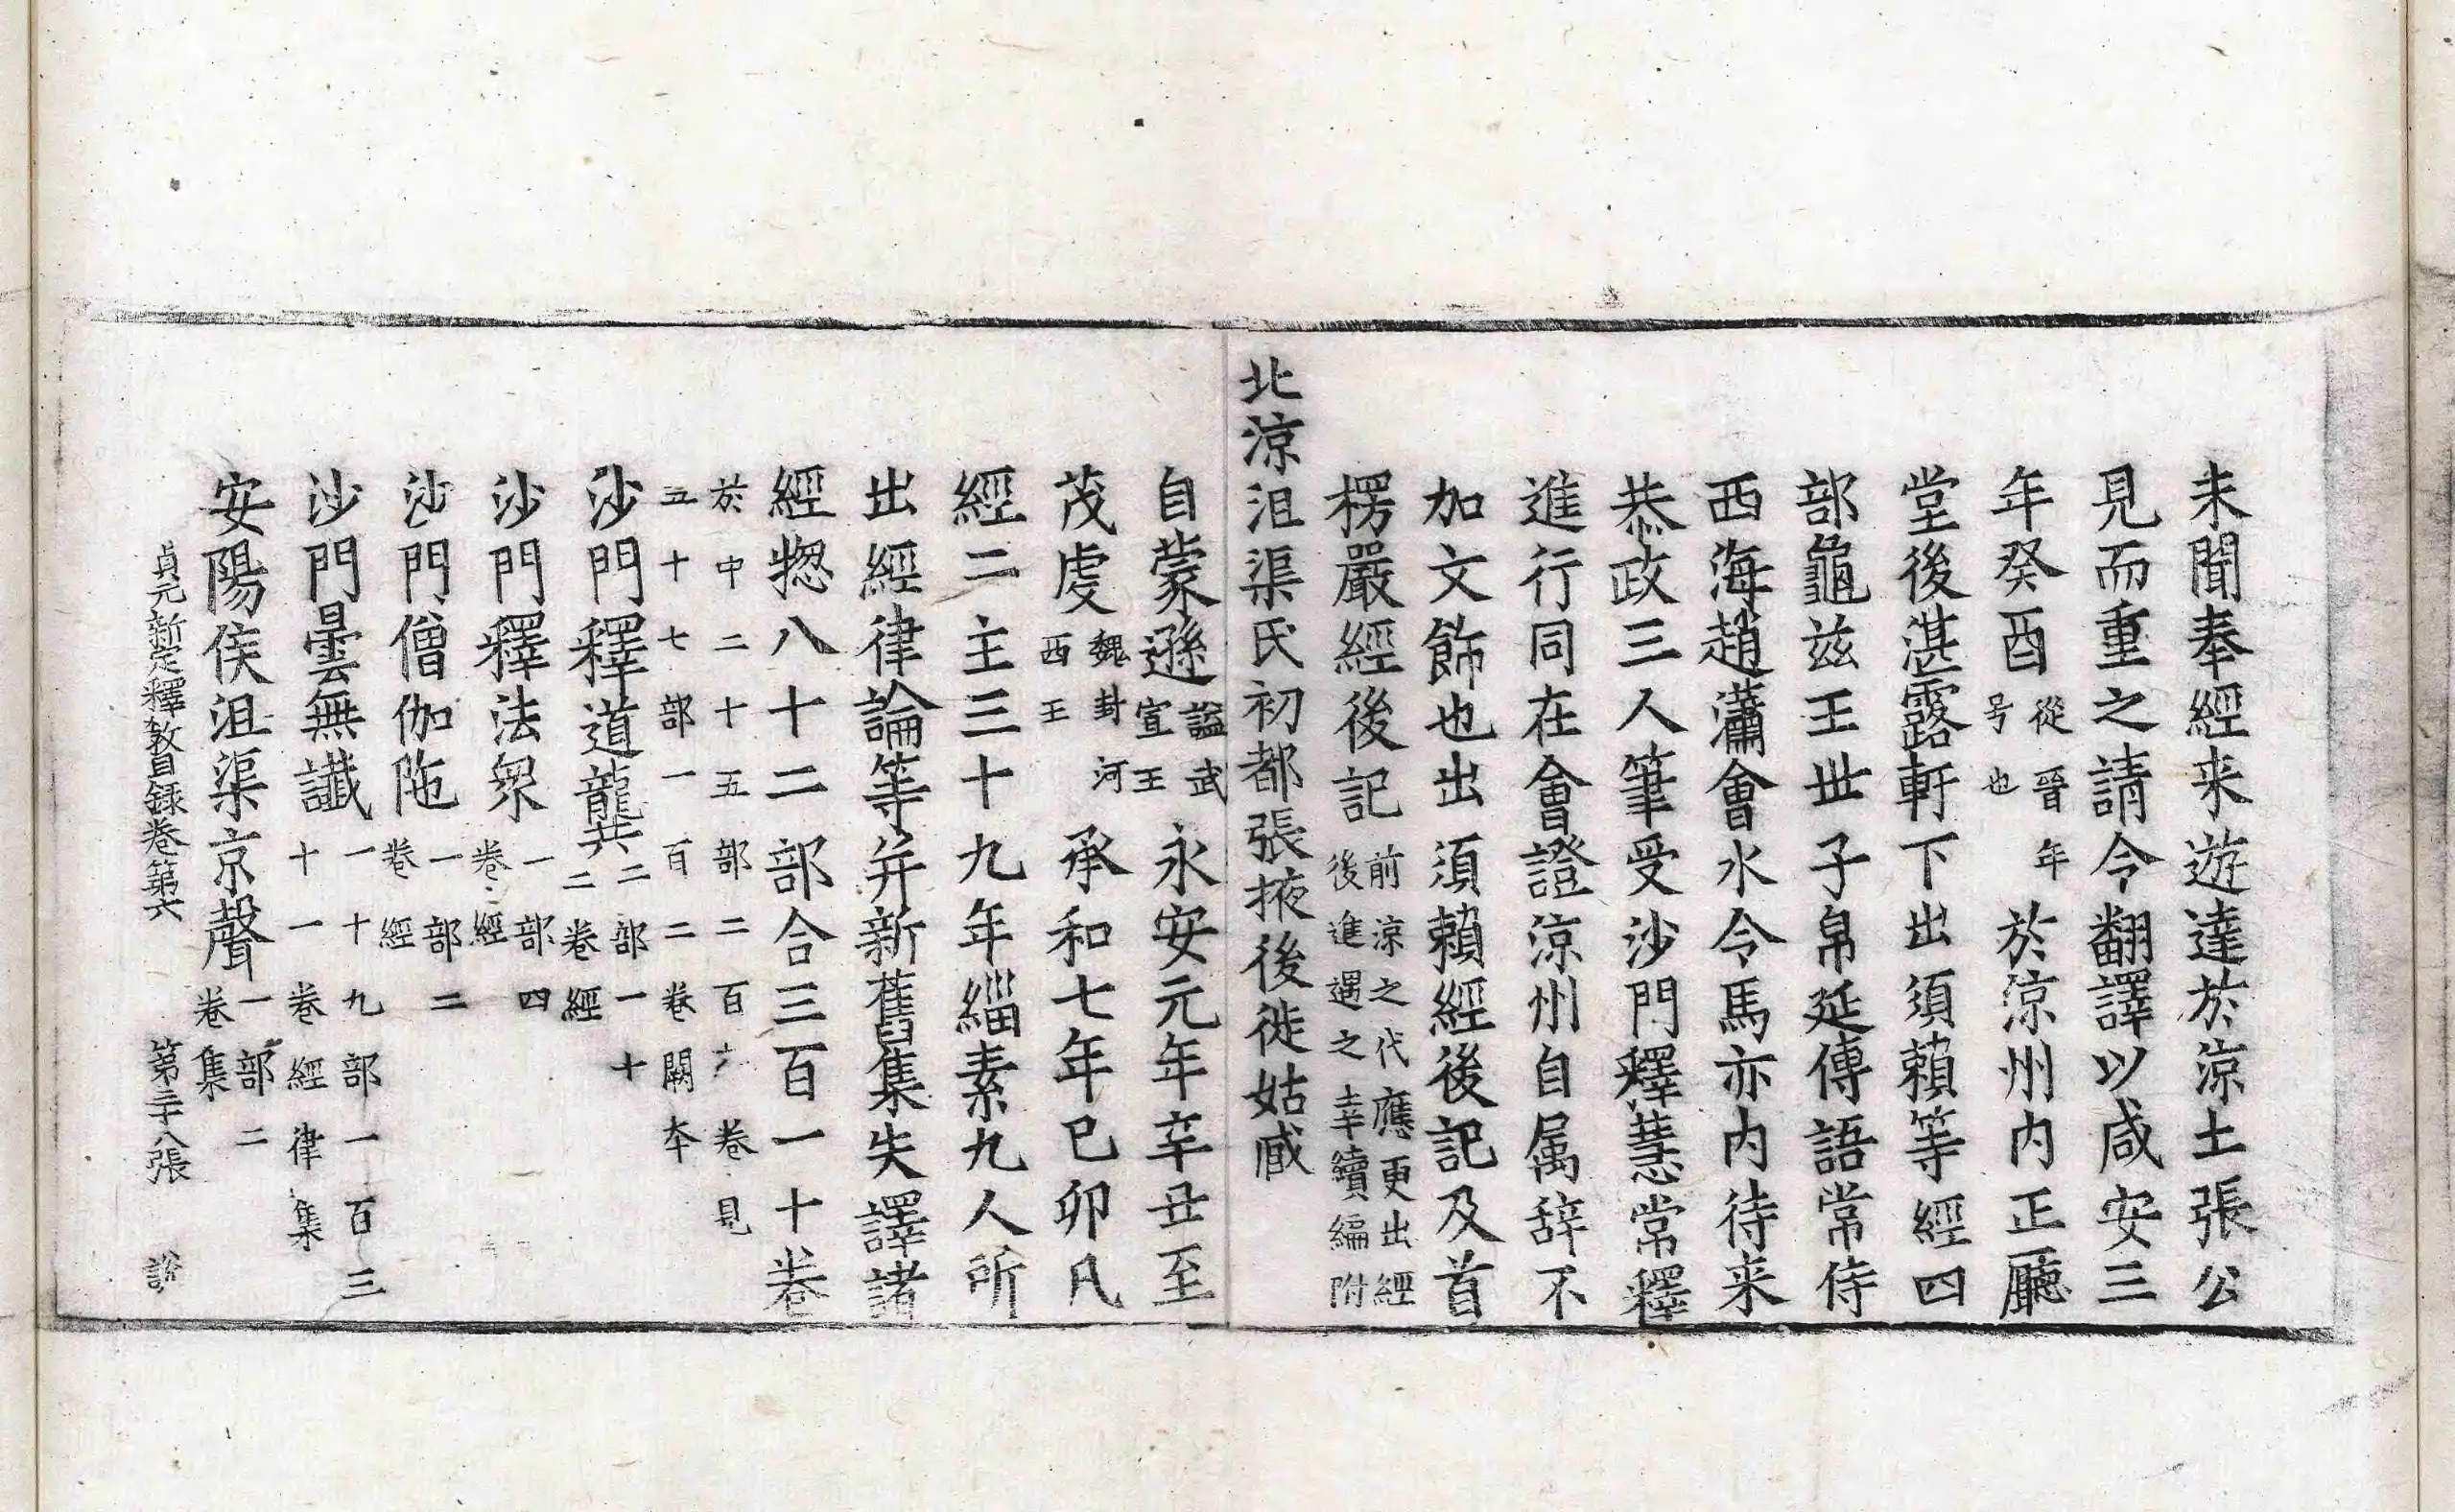 未聞奉經来遊達於涼土張公
見而重之請令翻譯以咸安三
年癸酉從晉年号也於涼州内正廳
堂後湛露軒下出須賴等經四
部龜兹王世子帛延傳語常侍
西海趙瀟會水令馬亦内待来
恭政三人筆受沙門釋慧常釋
進行同在會證涼州自属辞不
加文飾也出須賴經後記及首
楞嚴經後記前涼之代應更出經後進遇之幸續編附
北涼沮渠氏初都張掖後徙姑臧
自蒙遜謚武宣王永安元年辛丑至
茂虔魏封河西王承和七年已卯凡
經二主三十九年緇素九人所
出經律論等并新舊集失譯諸
經惣八十二部合三百一十卷
於中二十五部二百九卷見
五十七部一百二卷闕夲
沙門釋道龍共二部一十二卷經
沙門釋法衆一部四卷經
沙門僧伽陁一部二卷經
沙門曇無讖一十九部一百三十一卷經律集
安陽侯沮渠京聲一部二卷集
貞元新定釋教目録卷第六 第三十八張 說